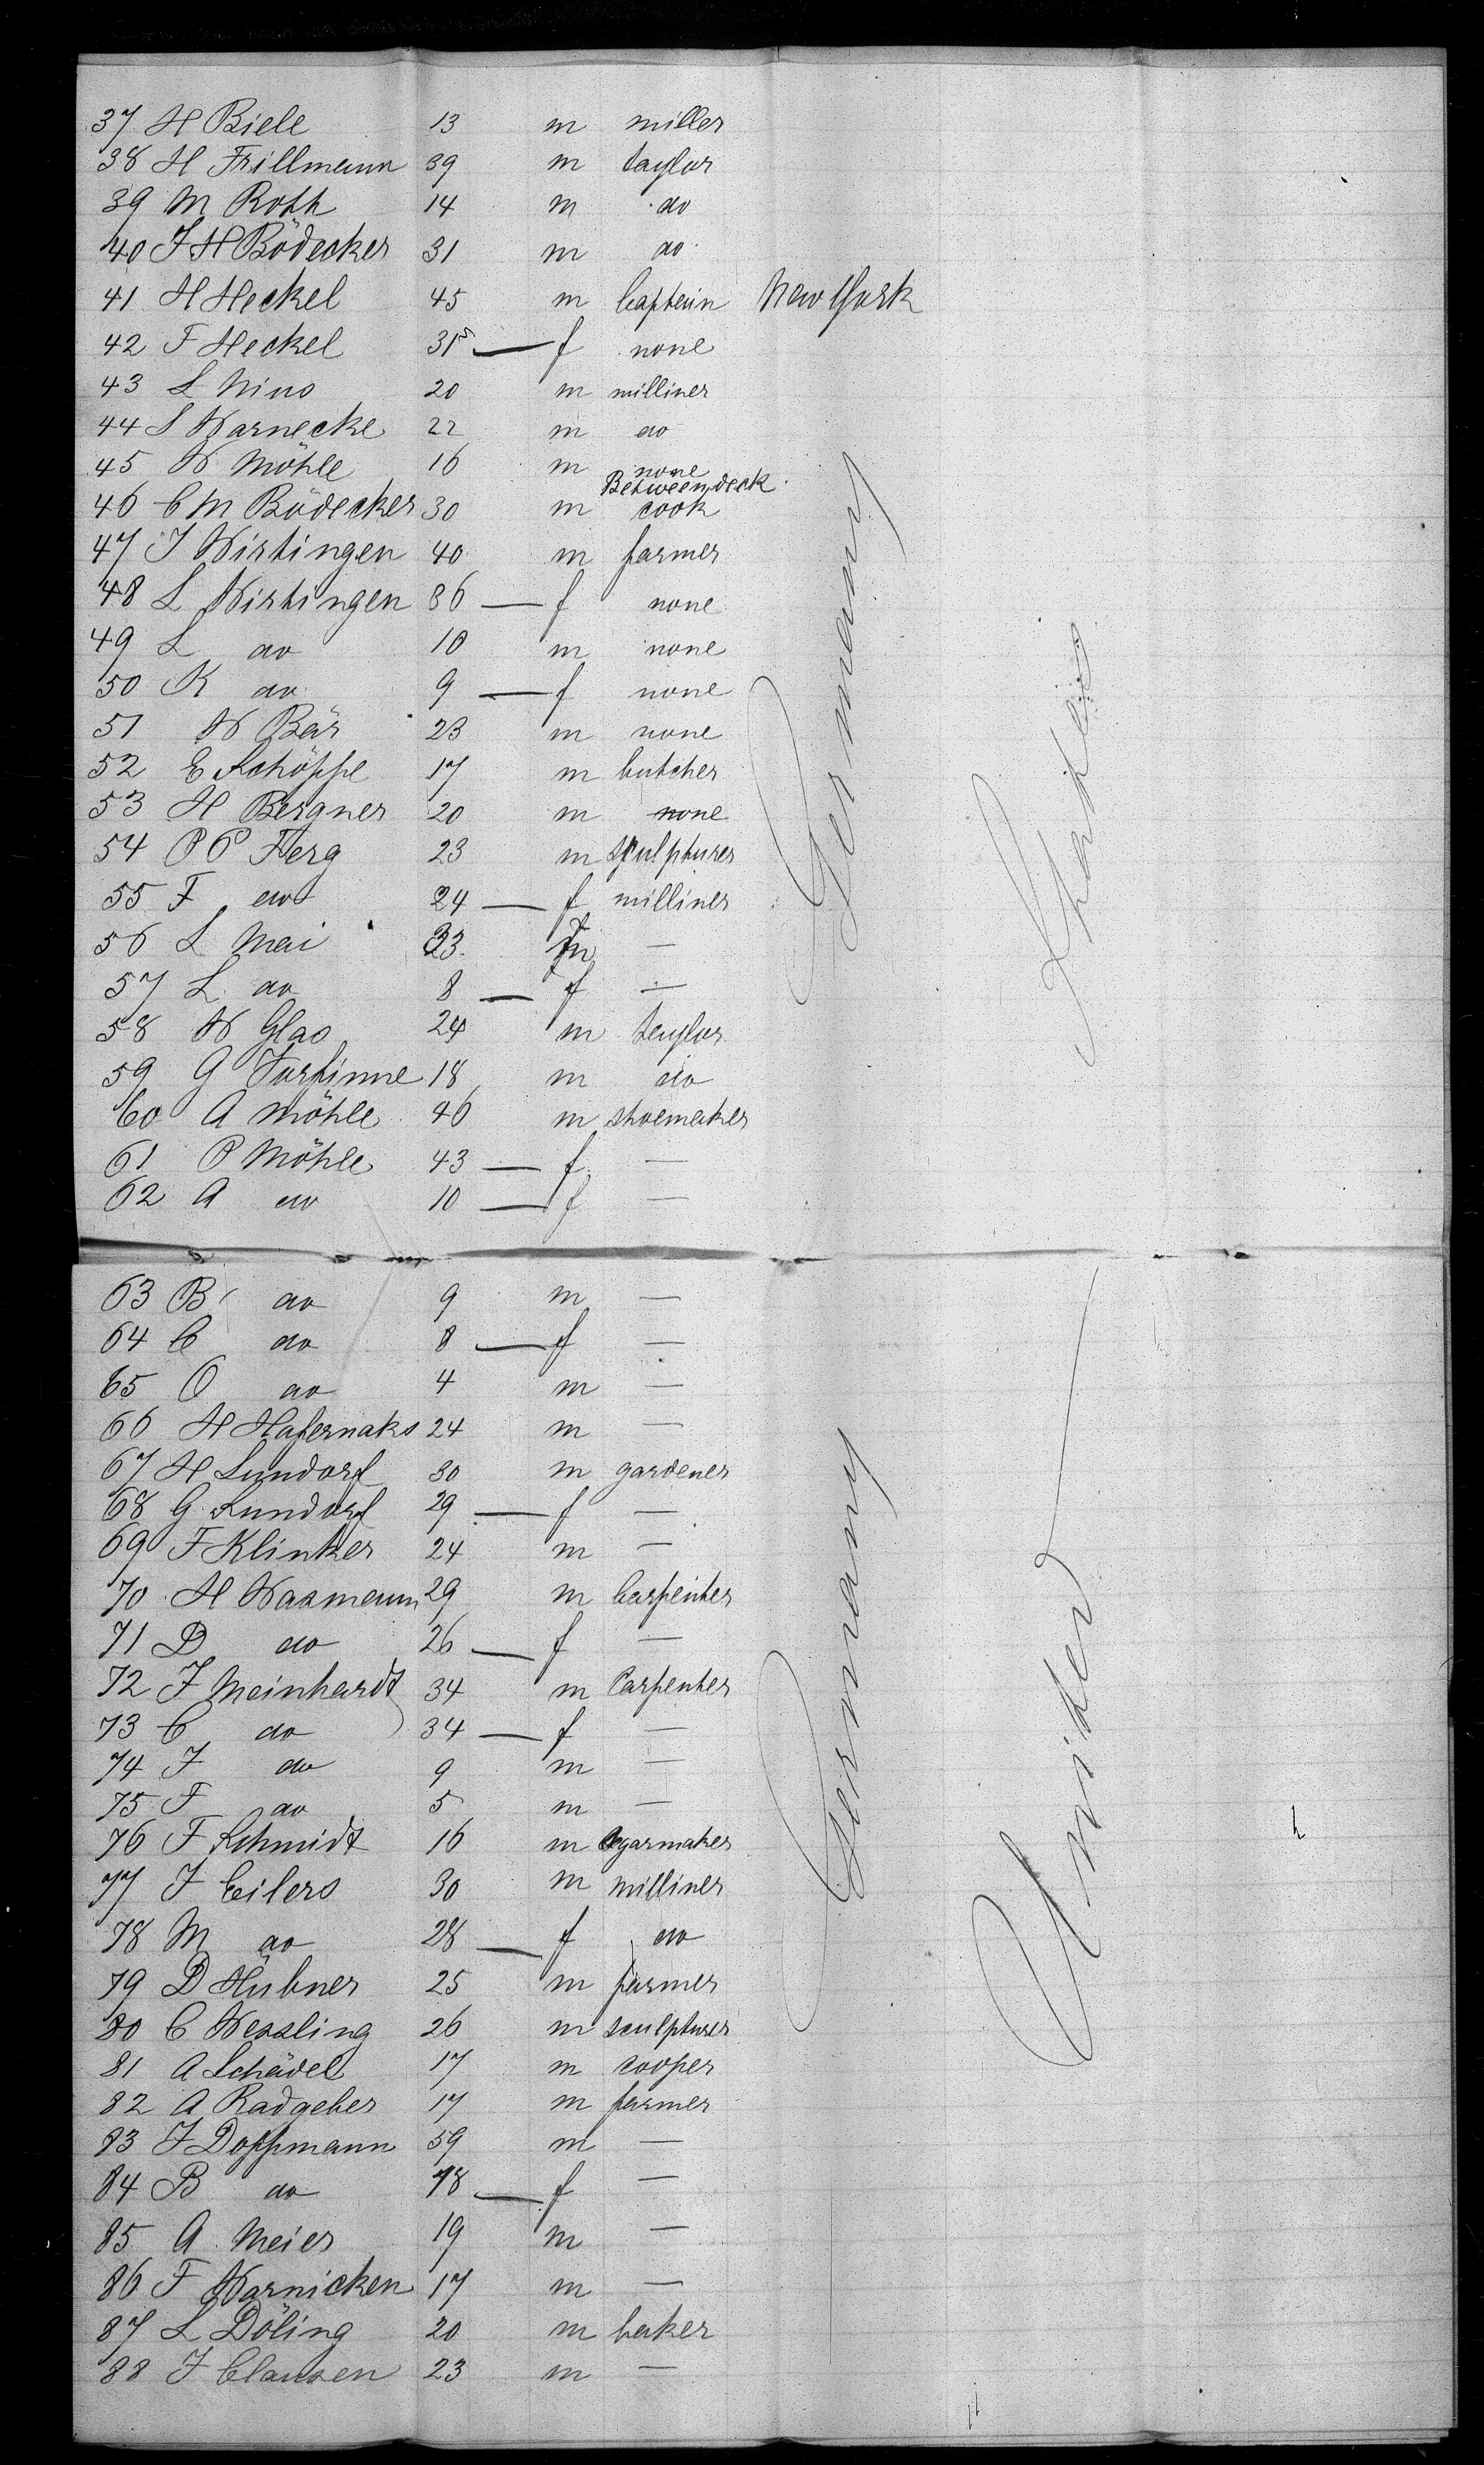 37 H Biele 13 m miller
38 H Frillmann 39 m taylor
39 M Roth 14 m do
40 J H Bödecker 31 m do
41 H Heckel 45 m Captain New York
42 F Heckel 31 f none
43 L 20 m milliner
44 L Warnecke 22 m do
45 W Möhle 16 m none
Betweendeck
46 C M Bödecker 30 m cook
47 J Wirtingen 40 m farmer
48 L Wirtingen 36 f none
49 L do 10 m none
50 K do 9 f none
51 W Bär 23 m none
52 E Schöppe 17 m butcher
53 H Bergner 20 m none
54 P P Herg 23 m sculpturer
55 F do 24 f milliner
56 L Mai 33 —
57 L do 8 f —
58 W Glas 24 m taylor
59 G 18 m do
60 A Möhle 46 m shoemaker
61 P Möhle 43 f —
62 A do 10 f —
63 B do 9 m —
64 C do 8 f —
65 O do 4 m —
66 H Hafernaks 24 m —
67 H Lundorf 30 m gardener
68 G Lundorf 29 f —
69 F Klinker 24 m —
70 H Wasmann 29 m Carpenter
71 D do 26 f —
72 J Meinhardt 34 m Carpenter
73 C do 34 f —
74 J do 9 m —
75 F do 5 m —
76 F Schmidt 16 m segarmaker
77 J Eilers 30 m milliner
78 M do 28 f do
79 D Hübner 25 m farmer
80 C Wessling 26 m sculpturer
81 A Schädel 17 m cooper
82 A Radgeber 17 m farmer
83 J Doppmann 59 m —
84 B do f —
85 A Meier 19 m —
86 F Warnicken 17 m —
87 L Döling 20 m baker
88 J Clausen 23 m —
Germany
Germany
United
States